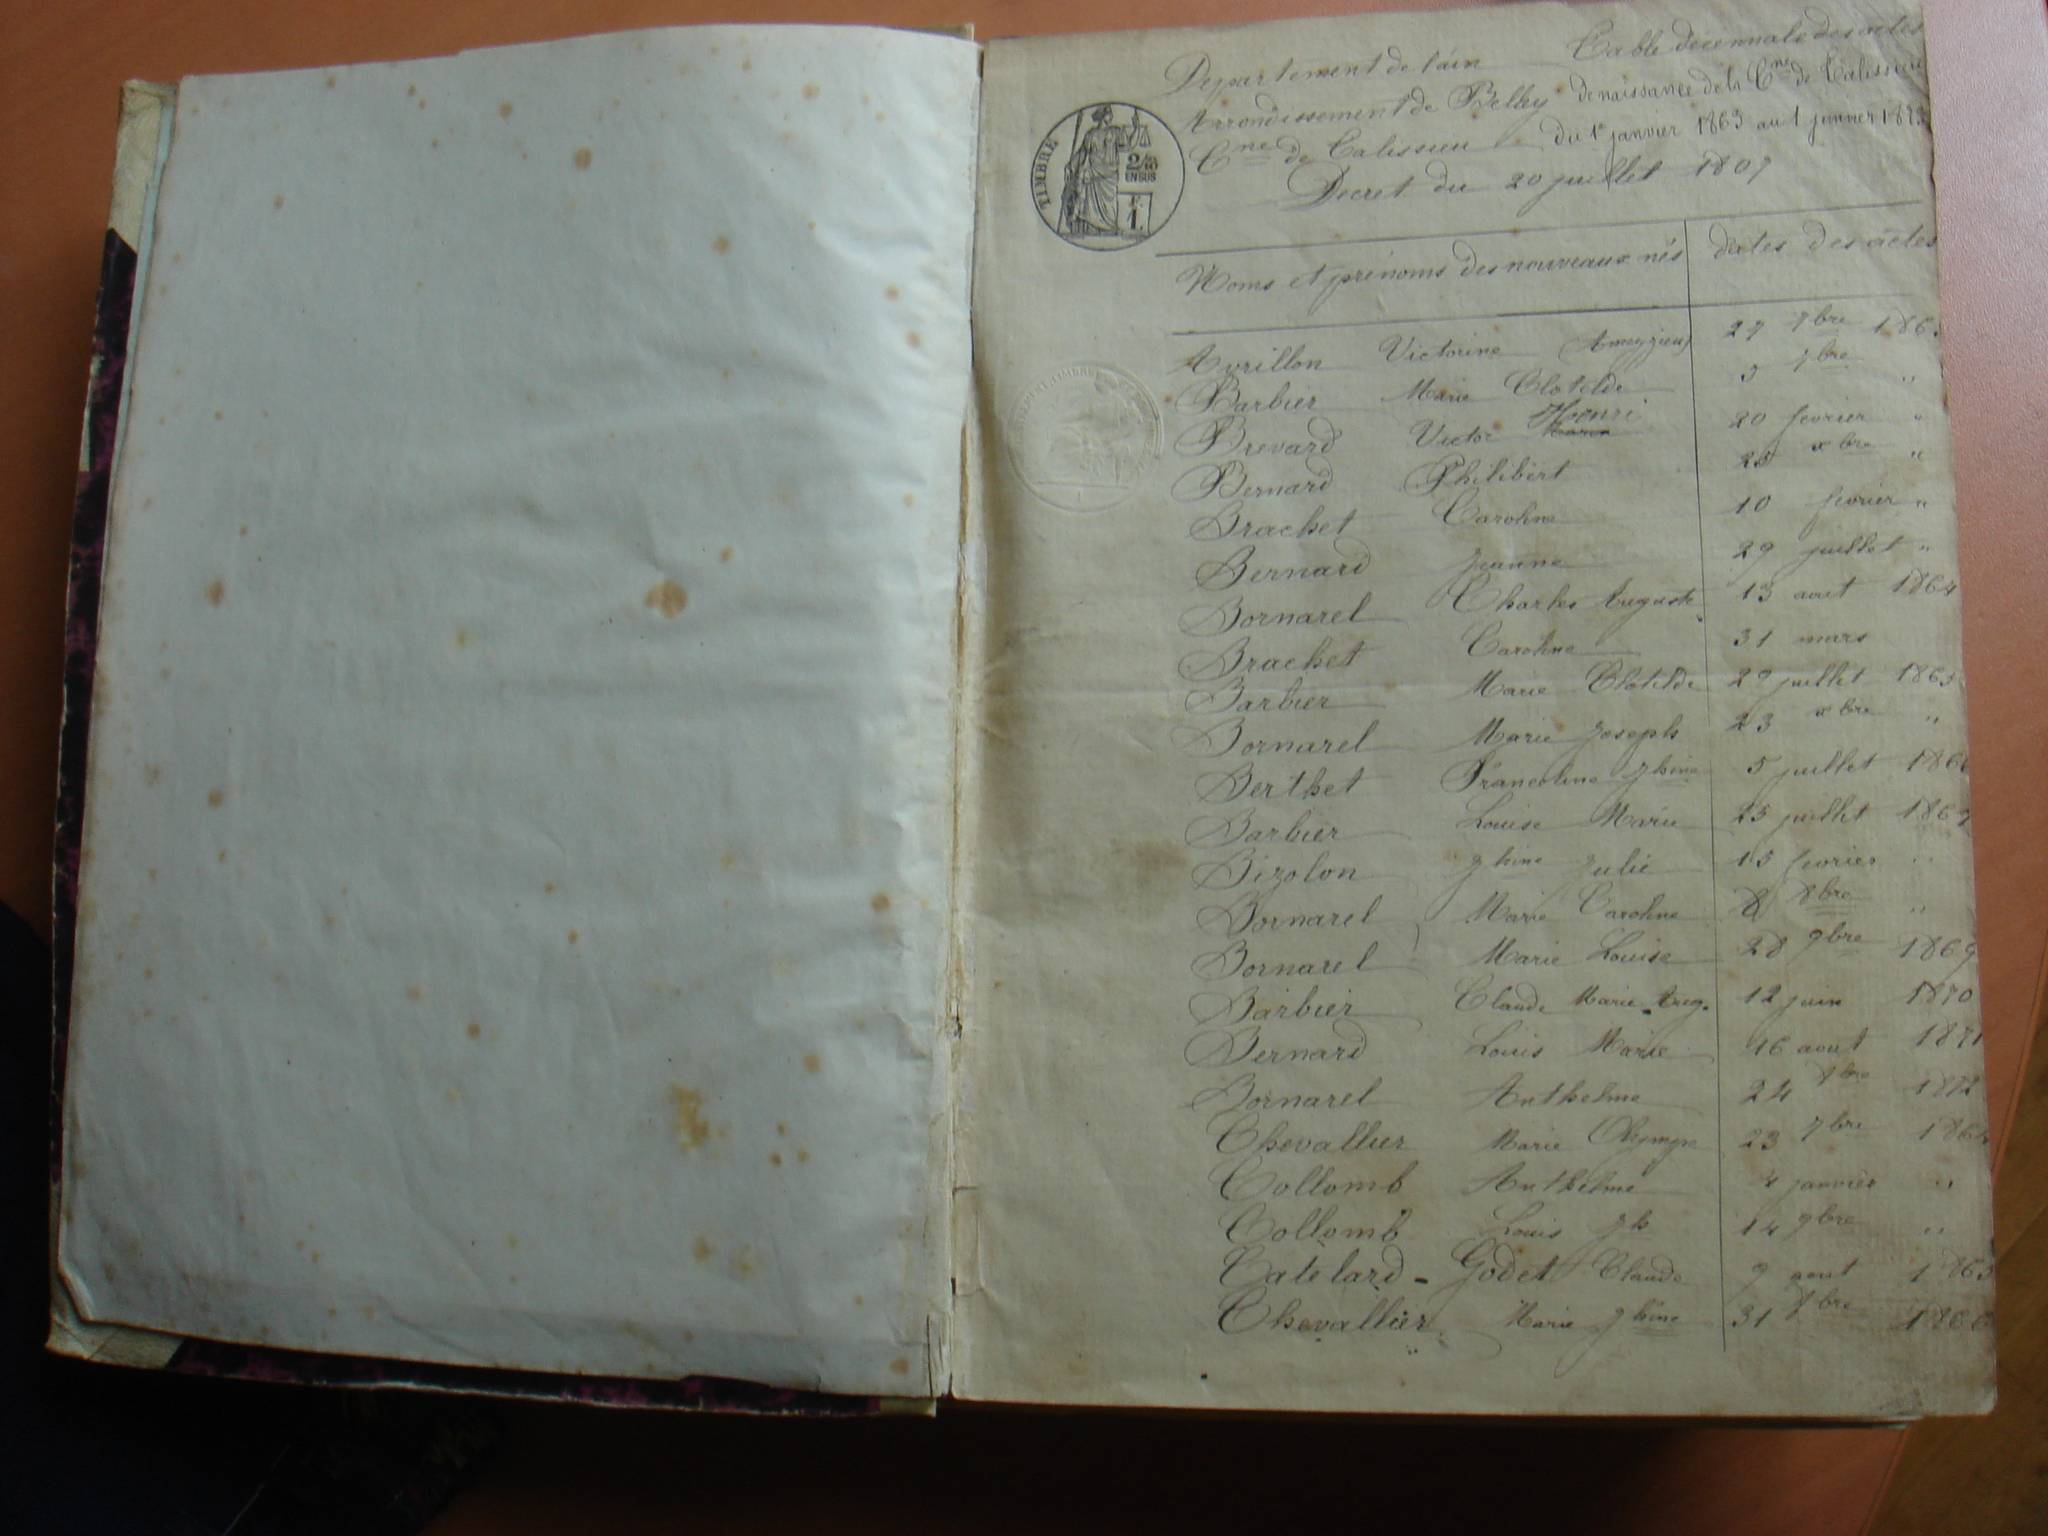 Departement de l'ain
Table decennale des actes
Arrondissement de Belley
de naissance de la Cne de Talissieu
Cne de Talissieu
du 1er janvier 1863 au 1 janvier 1873
Decret du 20 juillet 1807
TIMBRE
2/10
EN SUS
1F.
Noms et prénoms des nouveaux nés dates des actes
Avrillon Victorine (Ameyzieu) 27 7bre 186
Barbier Marie Clotilde 3 7bre "
Brevard Victor Henri 20 fevrier "
Bernard Philibert 25 xbre "
Brachet Caroline 10 fevrier "
Bernard Jeanne 29 juillet "
Bornarel Charles Auguste 13 aout 1864
Brachet Caroline 31 mars
Barbier Marie Clotilde 29 juillet 1865
Bornarel Marie Joseph 23 xbre "
Berthet Francoline Jhine 5 juillet 1866
Barbier Louise Marie 25 juillet 1867
Bizolon Jhine Julie 15 fevrier "
Bornarel Marie Caroline 8 8bre "
Bornarel Marie Louise 28 9bre 1869
Barbier Claude Marie Aug. 12 juin 1870
Bernard Louis Marie 16 aout 1871
Bornarel Anthelme 24 1872
Chevallier Marie Olympe 23 7bre 1864
Collomb Anthelme 4 janvier "
Collomb Louis Jh 14 9bre "
Catelard - Godet Claude 9 aout 1865
Chevallier Marie Jhine 31 1866